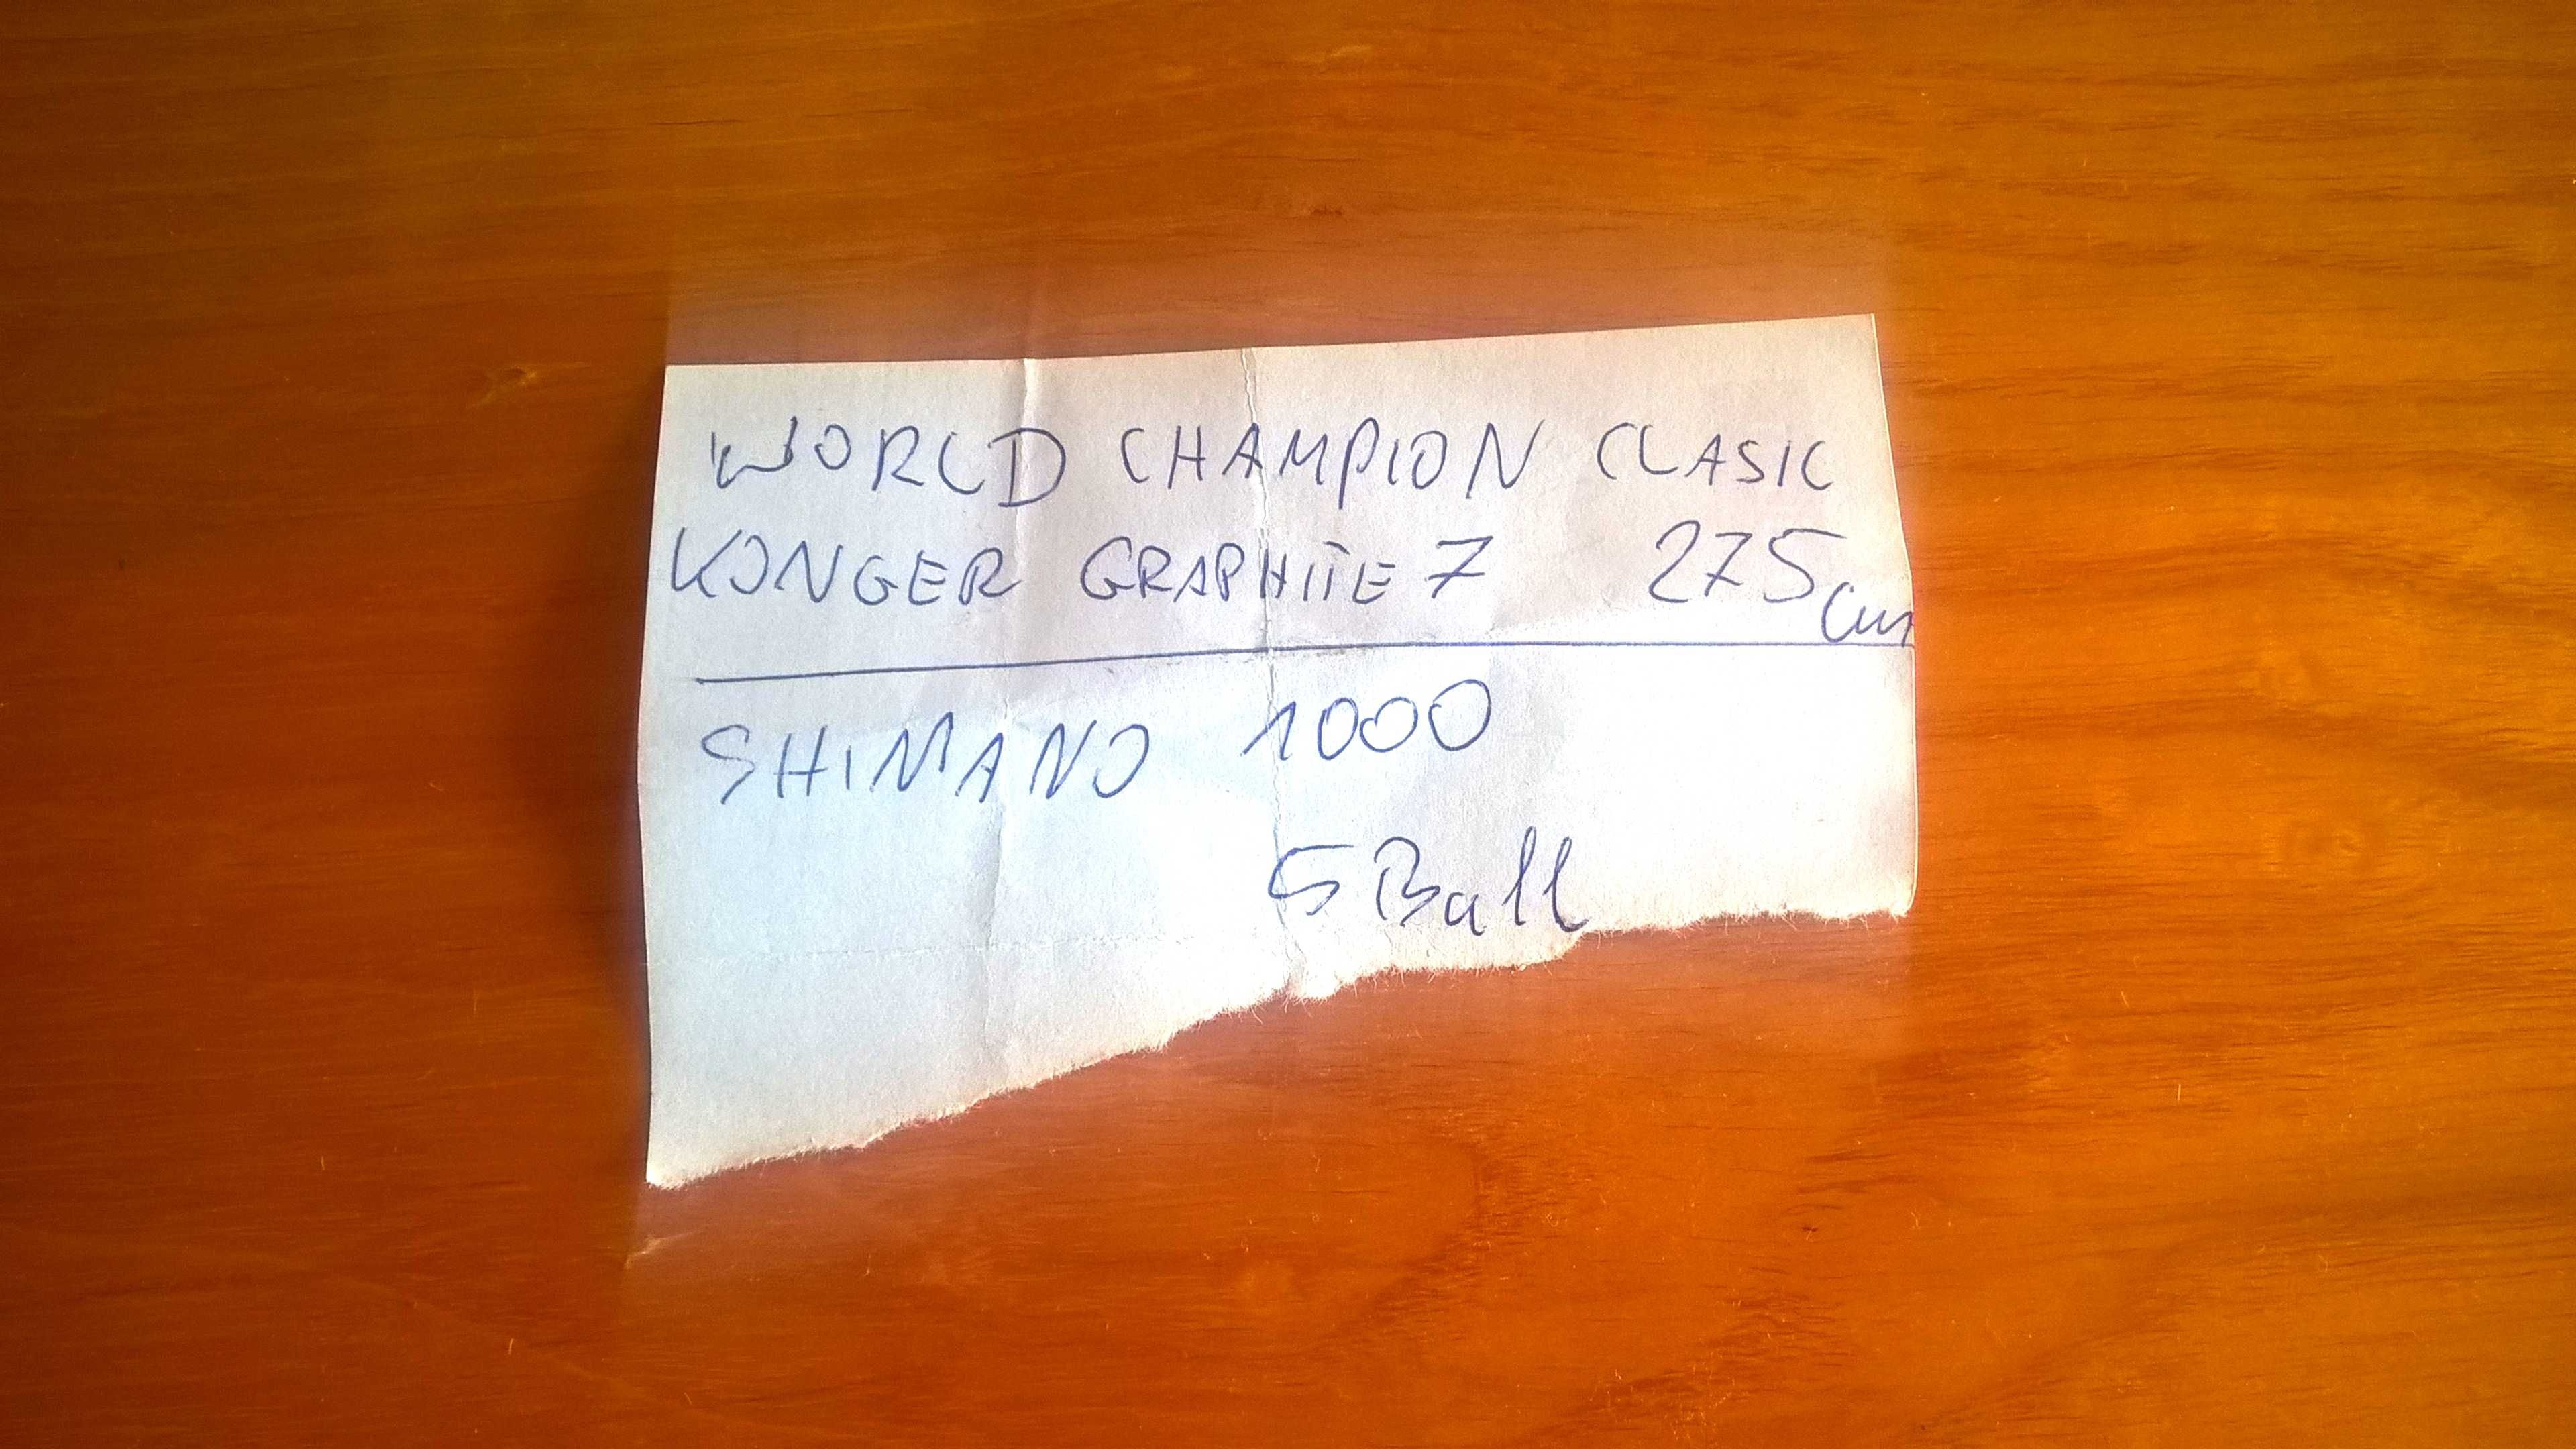 WORLD CHAMPION CLASIC
KONGER GRAPHITE 7 275cm
SHIMANO 1000
5Ball